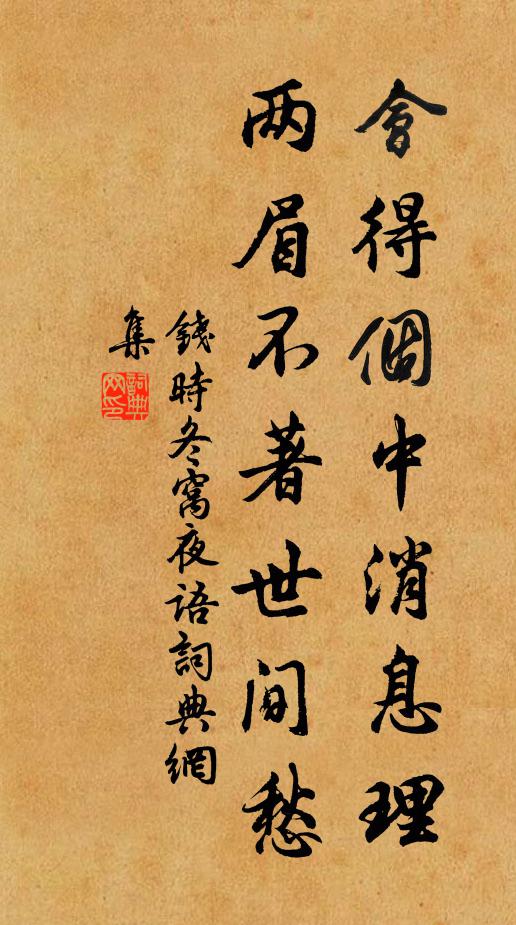 會得個中消息理
两眉不著世间愁
錢時冬窩夜語詞典網
集
詞典
网印